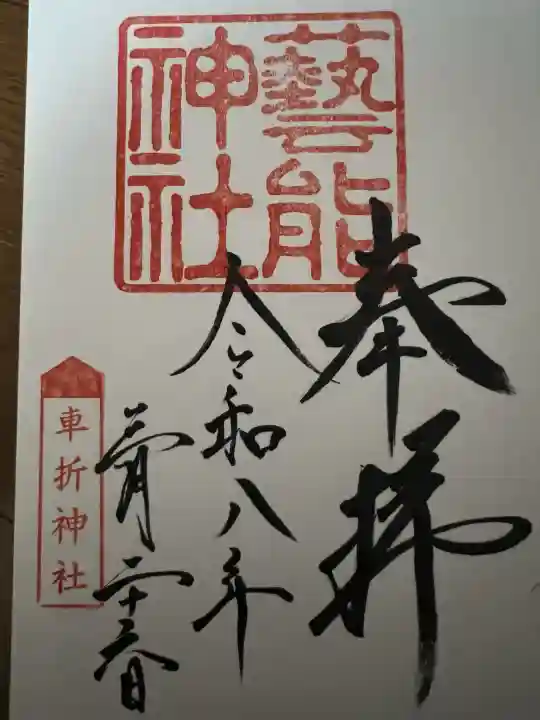 奉拝
藝能
神社
令和八年
三月二十六日
車折神社